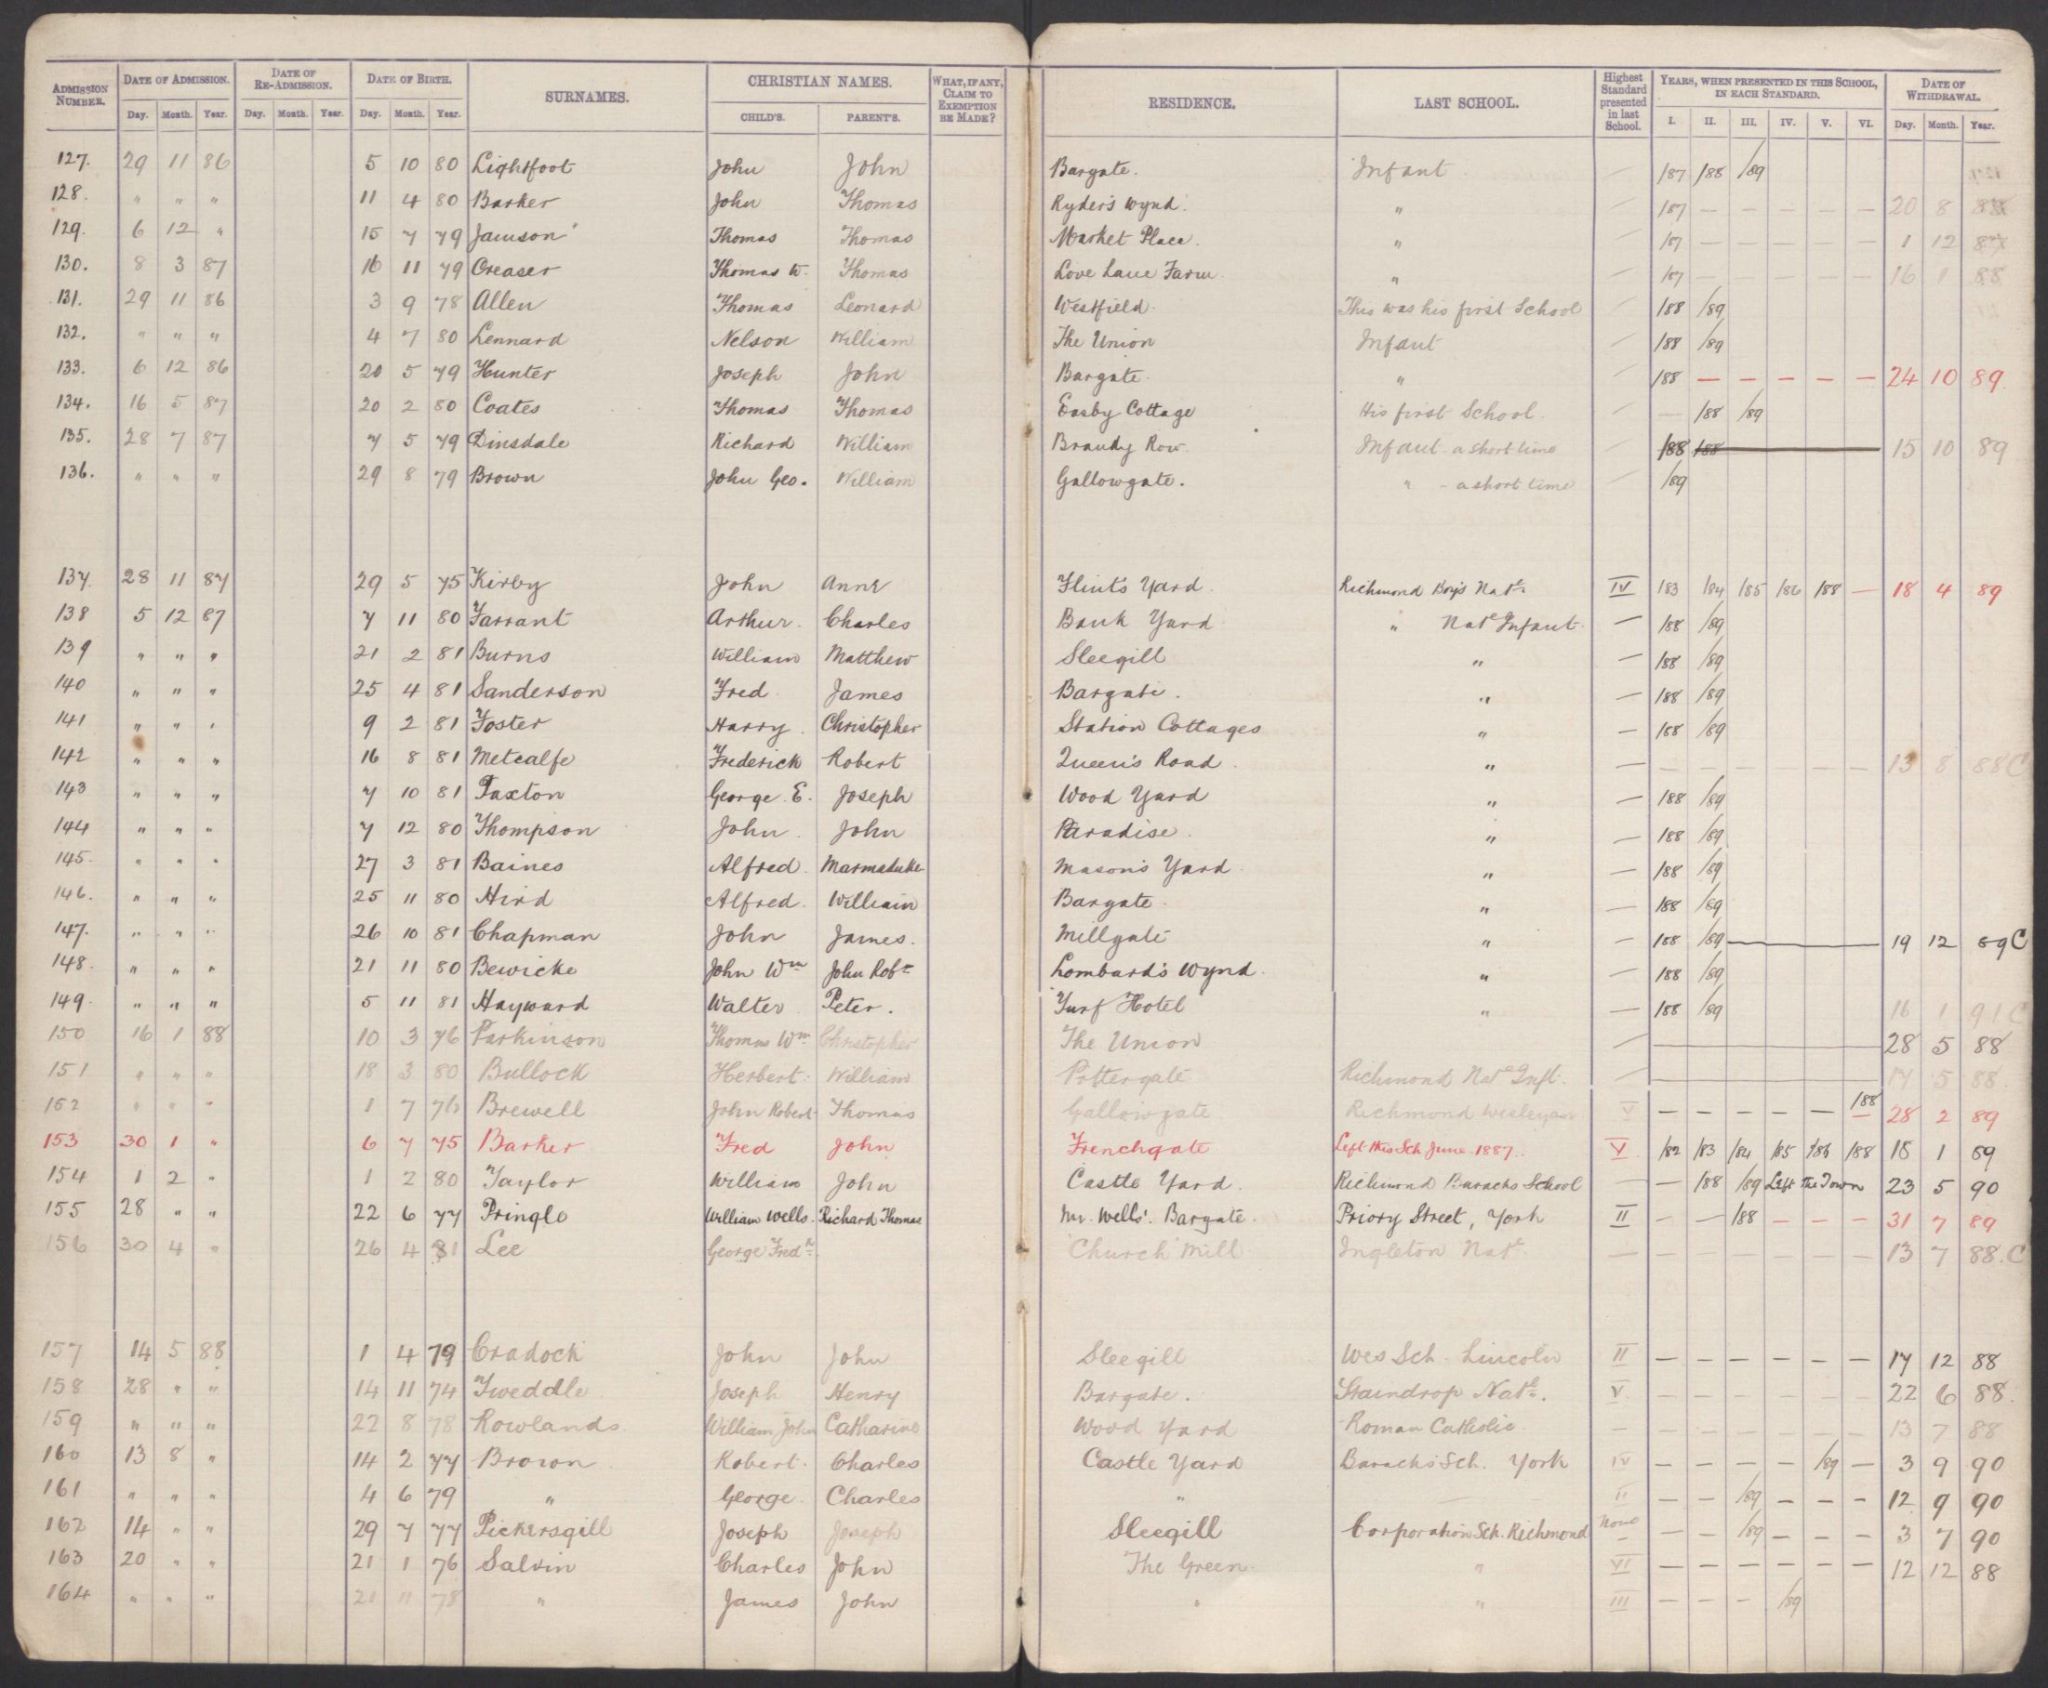 ADMISSION NUMBER. DATE OF ADMISSION. DATE OF RE-ADMISSION. DATE OF BIRTH. SURNAMES. CHRISTIAN NAMES. WHAT, IF ANY, CLAIM TO EXEMPTION BE MADE? RESIDENCE. LAST SCHOOL. Highest Standard presented in last School. YEARS, WHEN PRESENTED IN THIS SCHOOL, IN EACH STANDARD. DATE OF WITHDRAWAL.
Day. Month. Year. Day. Month. Year. Day. Month. Year. CHILD'S. PARENT'S. I. II. III. IV. V. VI. Day. Month. Year.
127. 29 11 86 5 10 80 Lightfoot John John Bargate. Infant — /87 /88 /89
128. " " " 11 4 80 Barker John Thomas Ryder's Wynd. " — /87 — — — — — 20 8 88
129. 6 12 " 15 7 79 Jamson Thomas Thomas Market Place. " — /87 — — — — — 1 12 87
130. 8 3 87 16 11 79 Creaser Thomas W. Thomas Love Lane Farm " — /87 — — — — — 16 1 88
131. 29 11 86 3 9 78 Allen Thomas Leonard Westfield. This was his first School — /88 /89
132. " " " 4 7 80 Lennard Nelson William The Union Infant — /88 /89
133. 6 12 86 20 5 79 Hunter Joseph John Bargate. " — /88 — — — — — 24 10 89
134. 16 5 87 20 2 80 Coates Thomas Thomas Easby Cottage His first School. — — /88 /89
135. 28 7 87 7 5 79 Dinsdale Richard William Brandy Row Infant - a short time — /88 /88 15 10 89
136. " " " 29 8 79 Brown John Geo. William Gallowgate. " - a short time — /89
137. 28 11 87 29 5 75 Kirby John Anne Flints Yard. Richmond Boys Natl. IV /83 /84 /85 /86 /88 — 18 4 89
138 5 12 87 7 11 80 Farrant Arthur. Charles Bank Yard " Natl Infant. — /88 /89
139 " " " 21 2 81 Burns William Matthew Sleegill " — /88 /89
140 " " " 25 4 81 Sanderson Fred James Bargate. " — /88 /89
141 " " " 9 2 81 Foster Harry. Christopher Station Cottages " — /88 /89
142 " " " 16 8 81 Metcalfe Frederick Robert Queen's Road. " — — — — — — — 13 8 88 C
143 " " " 7 10 81 Paxton George E. Joseph Wood Yard " — /88 /89
144 " " " 7 12 80 Thompson John. John Paradise. " — /88 /89
145. " " " 27 3 81 Baines Alfred. Marmaduke Mason's Yard. " — /88 /89
146. " " " 25 11 80 Hird Alfred. William Bargate. " — /88 /89
147. " " " 26 10 81 Chapman John James. Millgate " — /88 /89 — 19 12 89 C
148. " " " 21 11 80 Bewicke John Wm John Robt Lombard's Wynd. " — /88 /89
149. " " " 5 11 81 Hayward Walter Peter. Turf Hotel " — /88 /89 16 1 91 C
150 16 1 88 10 3 76 Parkinson Thomas Wm Christopher The Union — — 28 5 88
151 " " " 18 3 80 Bullock Herbert. William Pottergate Richmond Natl Inft. — — 17 5 88
152 " " " 1 7 76 Brewell John Robert Thomas Gallowgate Richmond Wesleyan V — — — — — /88 — 28 2 89
153 30 1 " 6 7 75 Barker Fred John Frenchgate Left this Sch June 1887. V /82 /83 /84 /85 /86 /88 18 1 89
154 1 2 " 1 2 80 Taylor William John Castle Yard. Richmond Baracks School — — /88 /89 Left the Town 23 5 90
155 28 " " 22 6 77 Pringle William Wells. Richard Thomas Mr. Wells'. Bargate. Priory Street, York II — — /88 — — — 31 7 89
156 30 4 " 26 4 81 Lee George Fredk. Church Mill Ingleton Natl. — — — — — — — 13 7 88. C
157 14 5 88 1 4 79 Cradock John John Sleegill Wes Sch. Lincoln II — — — — — — 17 12 88
158 28 " " 14 11 74 Tweddle Joseph Henry Bargate. Staindrop Natl. V — — — — — — 22 6 88.
159 " " " 22 8 78 Rowlands William John Catharine Wood Yard Roman Catholic — — — — — — — 13 7 88
160 13 8 " 14 2 77 Brown Robert. Charles Castle Yard Barack's Sch. York IV — — — — /89 — 3 9 90
161 " " " 4 6 79 " George. Charles " II — — /89 — — — 12 9 90
162 14 " " 29 7 77 Pickersgill Joseph Joseph Sleegill Corporation Sch. Richmond None — — /89 — — — 3 7 90
163 20 " " 21 1 76 Salvin Charles John The Green. " VI — — — — — — 12 12 88
164 " " " 21 11 78 " James John " " III — — — /89